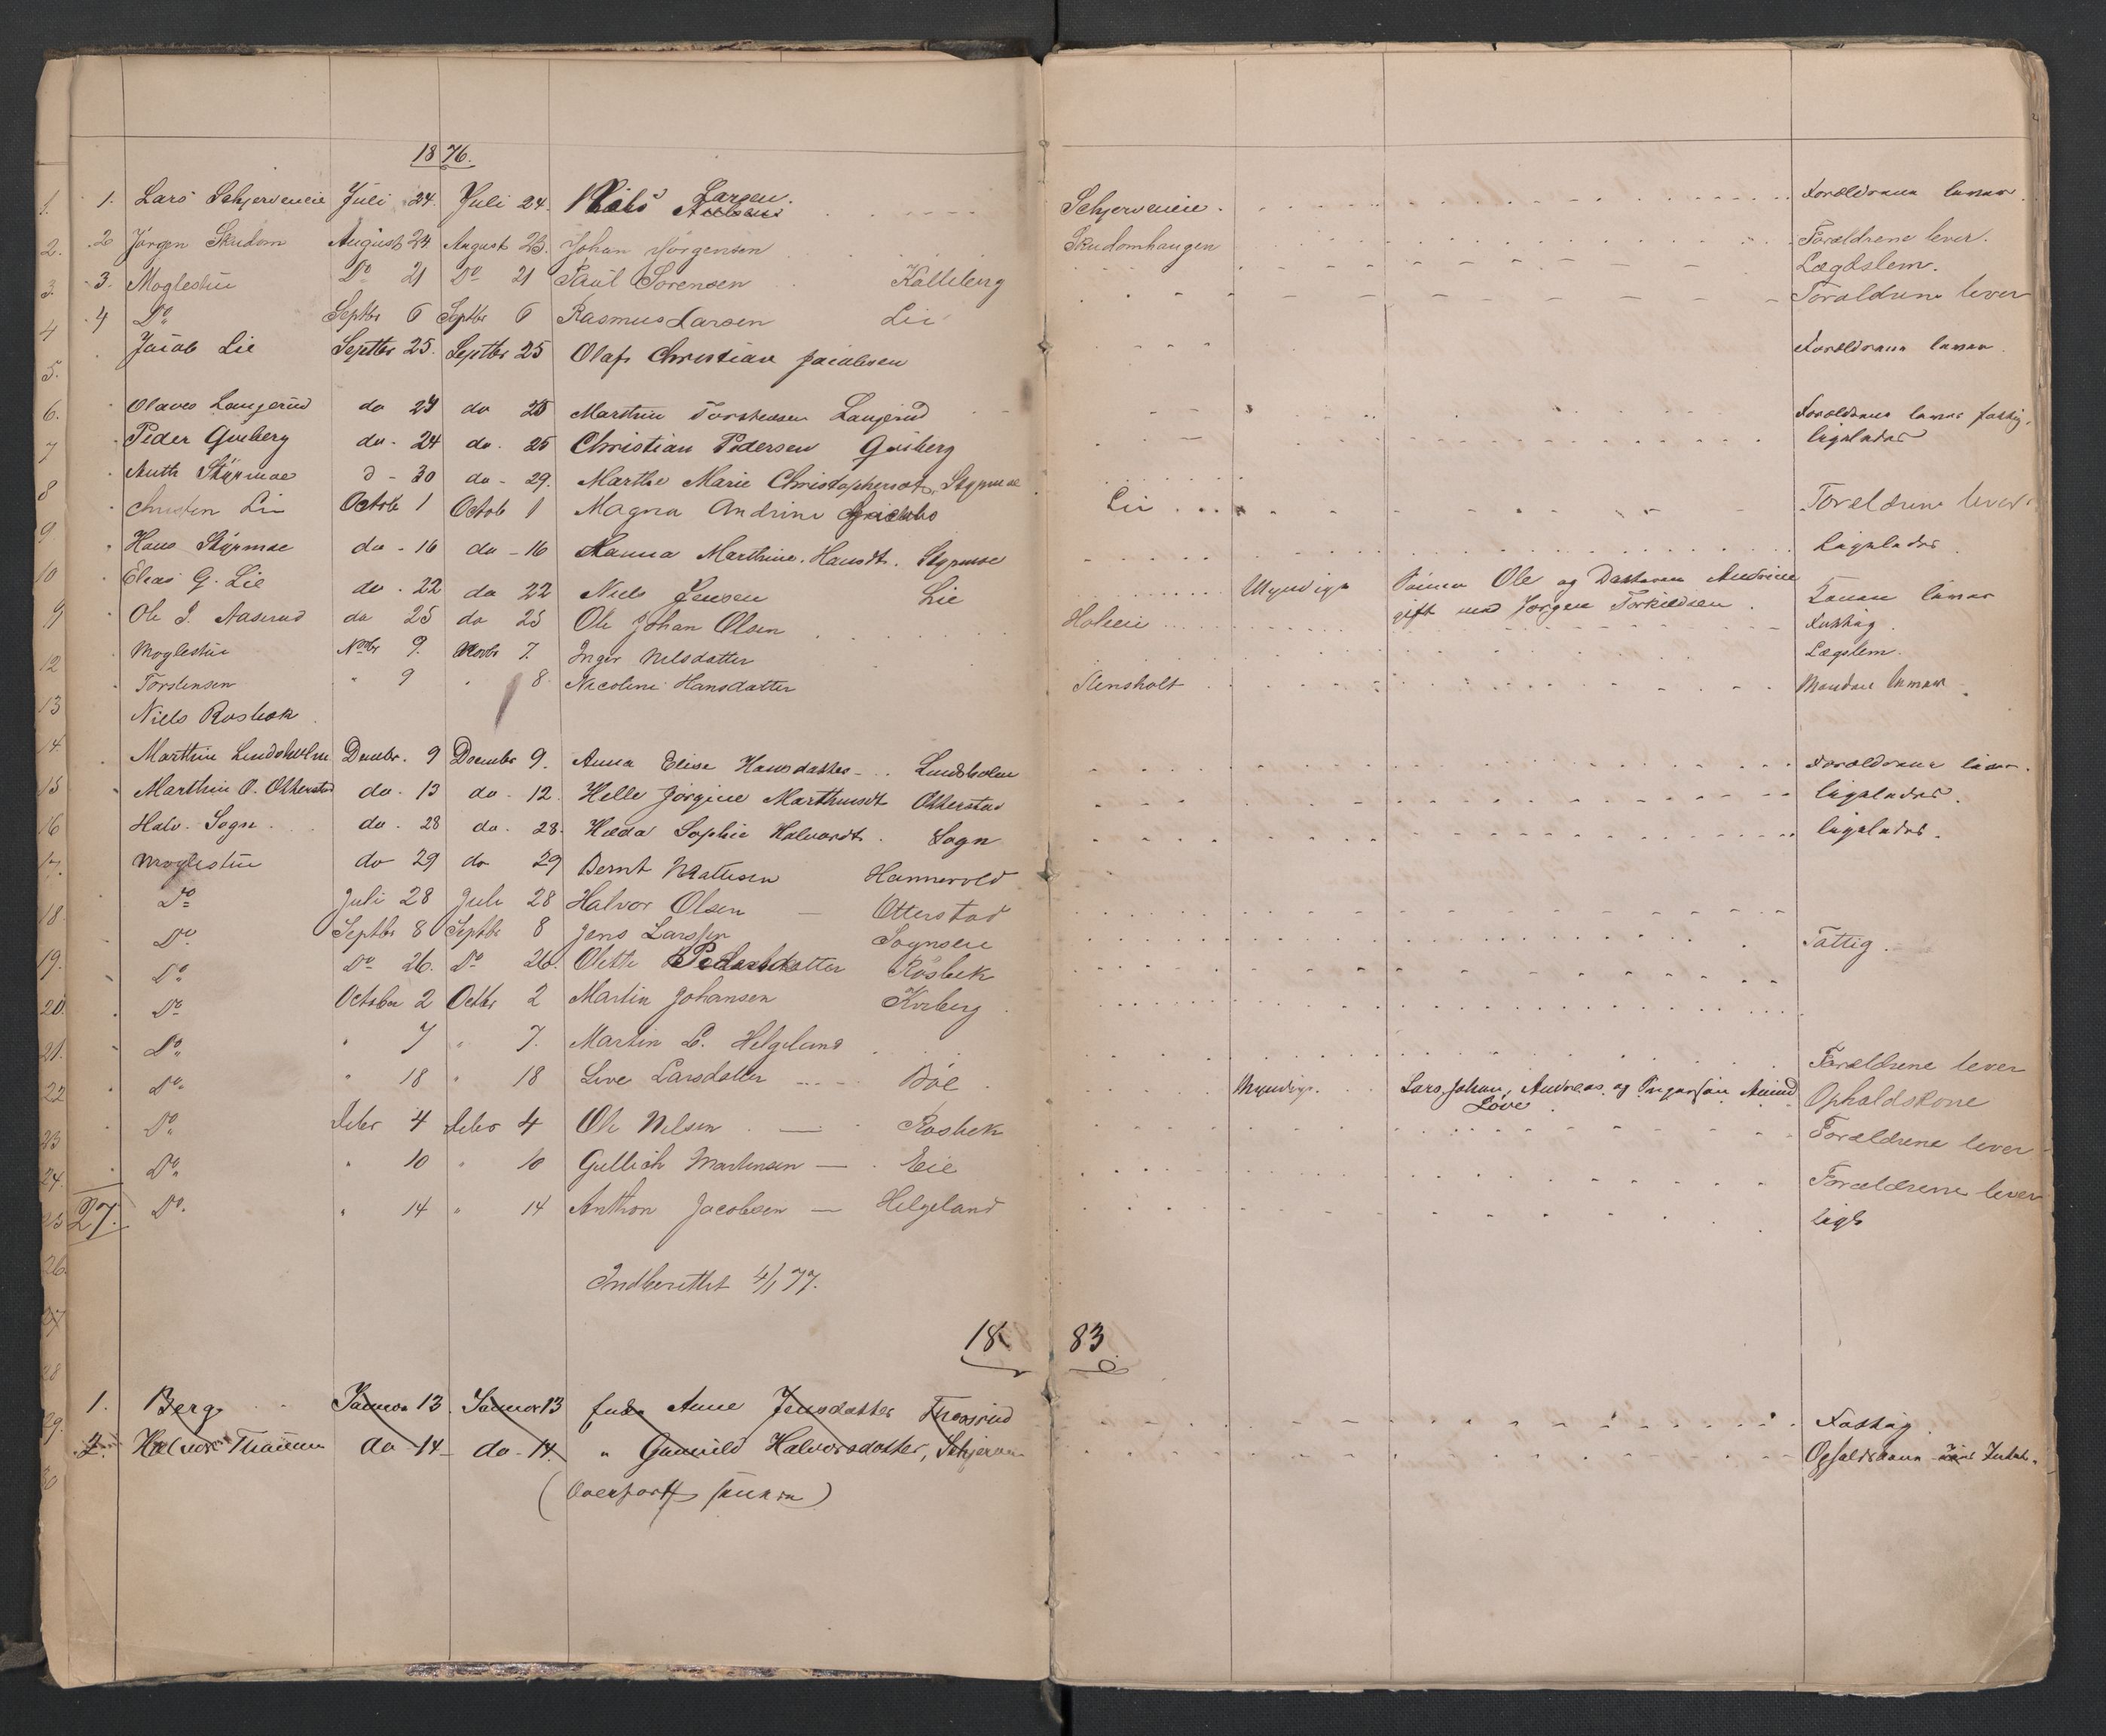 1876.
1. Lars Schjerveneie Juli 24. Juli 24. Niels Larsen. Schjerveneie. Forældrene lever.
2 Jörgen Skudom August 24 August 23. Johan Jörgensen Skudomhaugen Forældrene lever.
3. Moglestue Do 21 Do 21 Paul Sörensen Kalleberg Lægdslem.
4 Do Septbr 6 Septbr 6 Rasmus Larsen Lie Forældrene lever
Jacob Lie Septbr 25. Septbr 25 Olaf Christian Jacobsen Forældrene lever.
Olaves Langerud do 27 do 28 Marthin Torstensen Langerud Forældrene lever fattig.
Peder Gusberg do. 24 do. 25 Christian Pedersen Gusberg ligeledes
Styrmoe d - 30 do - 29. Marthe Marie Christophersdt. Styrmoe
Christen Lie Octob 1 Octob 1 Magna Andrine Lie Forældrene lever
Hans Styrmoe do - 16 do - 16 Hanna Marthine Hansdt. Styrmoe Ligeledes
Elias G. Lie do. 22 do 22 Niels Jensen Lie Myndige Sönnen Ole og Datteren Andrine Konen lever
gift med Jörgen Torkildsen.
Ole J. Aaserud do 25 do 25 Ole Johan Olsen Holseie Fattig.
Moglestue Novbr 9. Novbr 7. Inger Nilsdatter Lægslem.
Torstensen " 9 " 8. Nicoline Hansdatter Stensholt Manden lever
Niels Rosbæk
Marthin Lundsholm Decmbr. 9 December 9. Anna Elise Hansdatter Lundsholm Forældrene lever.
Marthin O. Otterstad do. 13 do. 12. Helle Jörgine Marthinsdt Otterstad ligeledes.
Halv. Sogn. do. 28 do. 28. Hilda Sophie Halvordt. Sogn ligeledes.
Moglestue do 29 do 29 Bernt Mathisen Hannevold
Do Juli 28 Juli 28 Halvor Olsen — Otterstad
Do Septbr 8 Septbr 8 Jens Larssen Sognseie Fattig.
Do Do 26. Do 26. Olette Pedersdatter Rösbek
Do October 2 Octbr 2 Martin Johansen Kirberg
Do " 7 " 7. Martin L. Helgeland Forældrene lever
Do " 18 " 18 Live Larsdatter Böe Myndige. Lars, Johan, Andreas og Opholdskone
Do Debr 4 Debr 4 Ole Nilsen — Rosbek Forældrene lever
Do " 10 " 10 Gullich Martinsen — Eie Forældrene lever
27. Do " 14 " 14 Anthon Jacobsen — Helgeland ligs
Indberettet 4/1 77.
1883
1. Berg Januar 13. Januar 13 Anne Jensdatter Fattig.
2. Halvor do - 14 - do - 14. " Gunnild Halvorsdatter, Schjerven
(Overfört)
1.
2.
3
4
5.
6.
7
8
9
10
9
12
13
14.
15
16
17.
18
19.
20.
21.
22
23
24.
25
26.
27
28
29.
30